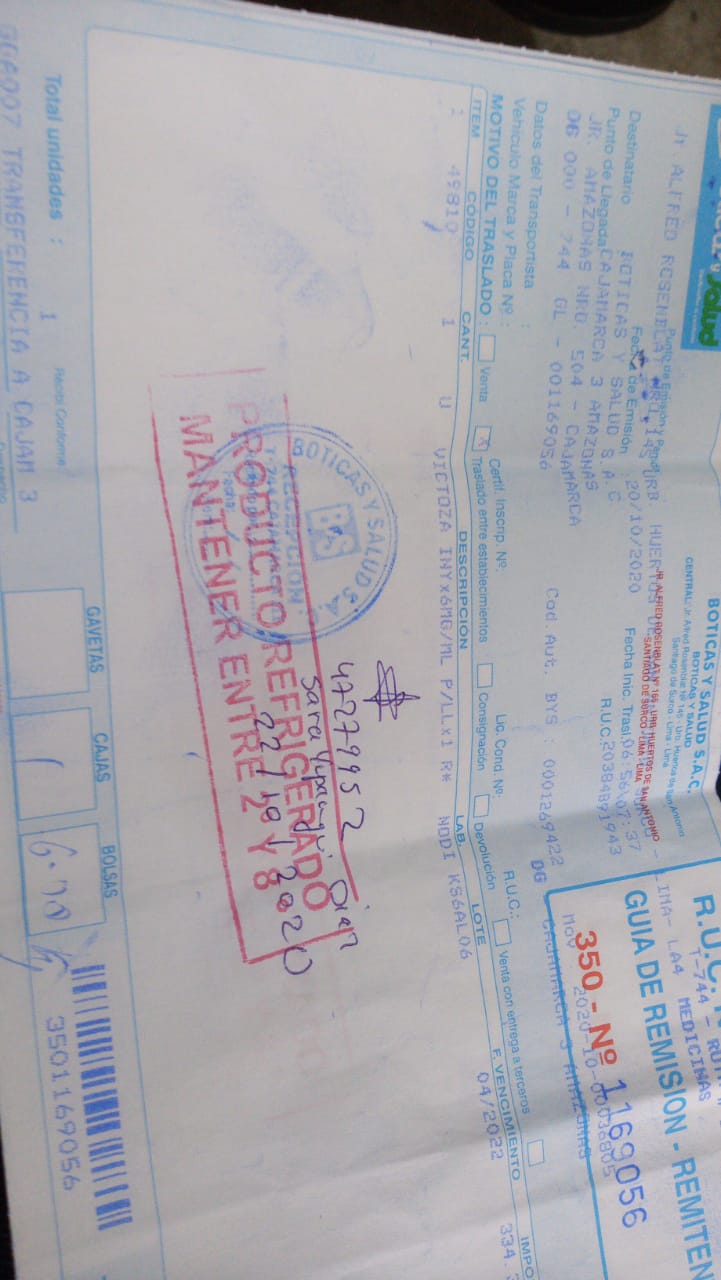 Salud
BOTICAS Y SALUD S.A.C.
BOTICAS Y SALUD
CENTRAL: Jr. Alfred Rosenblat Nº 145 - Urb. Huertos de San Antonio
Santiago de Surco - Lima - Lima
JR. ALFRED ROSENBLAT Nº 165 URB. HUERTOS DE SAN ANTONIO
SANTIAGO DE SURCO - LIMA - LIMA
R.U.C.
T-744 - RUTA
LIMA- LA4 MEDICINAS
GUIA DE REMISION - REMITEN
350 - Nº 1169056
Punto de Emisión y Partida
Jr. ALFRED ROSENBLAT NRO.145 URB. HUERTOS DE
Fecha de Emisión 20/10/2020 Fecha Inic. Trasl. 06:56:07:37
Destinatario BOTICAS Y SALUD S.A.C R.U.C. 20384891943
Punto de Llegada CAJAMARCA 3 AMAZONAS
JR. AMAZONAS NRO. 504 - CAJAMARCA
06 000 - 744 GL - 001169056 Cod. Aut. BYS : 0001269422 DG
CAJAMARCA 3 AMAZONAS
mov 2020-10-00036805
Datos del Transportista :
Vehículo Marca y Placa Nº : Certif. Inscrip. Nº: Lic. Cond. Nº: R.U.C.:
MOTIVO DEL TRASLADO : Venta X Traslado entre establecimientos Consignación Devolución Venta con entrega a terceros
ITEM CÓDIGO CANT. DESCRIPCION LAB. LOTE F. VENCIMIENTO IMPO
1 49810 1 U VICTOZA INYx6MG/ML P/LLx1 R* NODI KS6AL06 04/2022 334.
BOTICAS Y SALUD S.A.
RECEPCION
BS
Fecha
PRODUCTO REFRIGERADO
MANTENER ENTRE 2 Y 8
47279952
22/10/2020
Total unidades : 1
Recibí Conforme
TRANSFERENCIA A CAJAM 3
GAVETAS CAJAS BOLSAS
3501169056